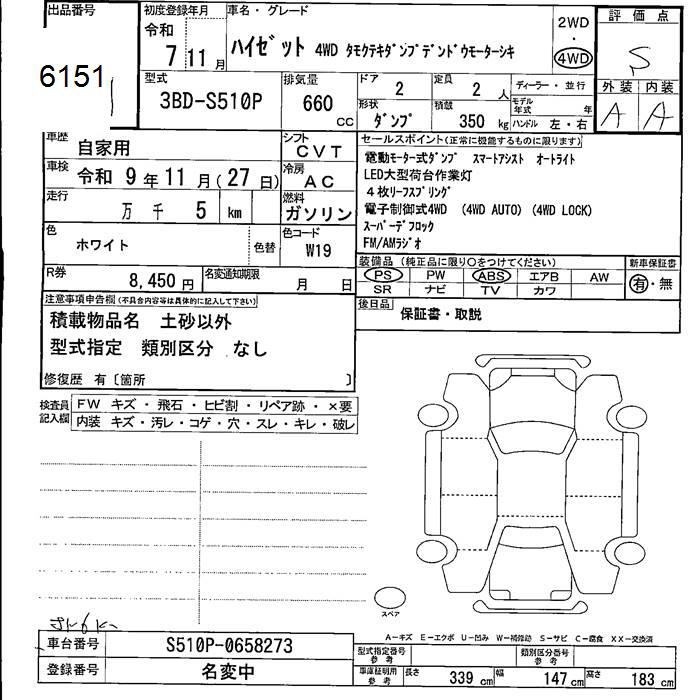 出品番号
6151
初度登録年月
令和
7年11月
車名・グレード
ハイゼット 4WD タモクテキダンプデンドウモーターシキ
2WD
・
4WD
評価点
S
外装 内装
A A
型式
3BD-S510P
排気量
660
cc
ドア
2
定員
2人
ディーラー・並行
形状
ダンプ
積載
350kg
モデル年式 年
ハンドル 左・右
車歴
自家用
シフト
CVT
車検
令和 9年11月(27日)
冷房
AC
走行
万 千 5 km
燃料
ガソリン
色
ホワイト
色替
色コード
W19
R券
8,450円
名変通知期限
月 日
セールスポイント(正常に機能するものに限ります)
電動モーター式ダンプ スマートアシスト オートライト
LED大型荷台作業灯
4枚リーフスプリング
電子制御式4WD (4WD AUTO) (4WD LOCK)
スーパーデフロック
FM/AMラジオ
装備品(純正品に限り○をつけてください)
PS PW ABS エアB AW
SR ナビ TV カワ
新車保証書
有・無
後日品
保証書・取説
注意事項申告欄(不具合内容等は具体的に記入して下さい)
積載物品名 土砂以外
型式指定 類別区分 なし
修復歴 有〔箇所 〕
検査員記入欄
FW キズ・飛石・ヒビ割・リペア跡・×要
内装 キズ・汚レ・コゲ・穴・スレ・キレ・破レ
スペア
A-キズ E-エクボ U-凹み W-補修跡 S-サビ C-腐食 XX-交換済
車台番号
S510P-0658273
登録番号
名変中
型式指定番号
参考
類別区分番号
参考
車庫証明用
参考
長さ 339cm 幅 147cm 高さ 183cm